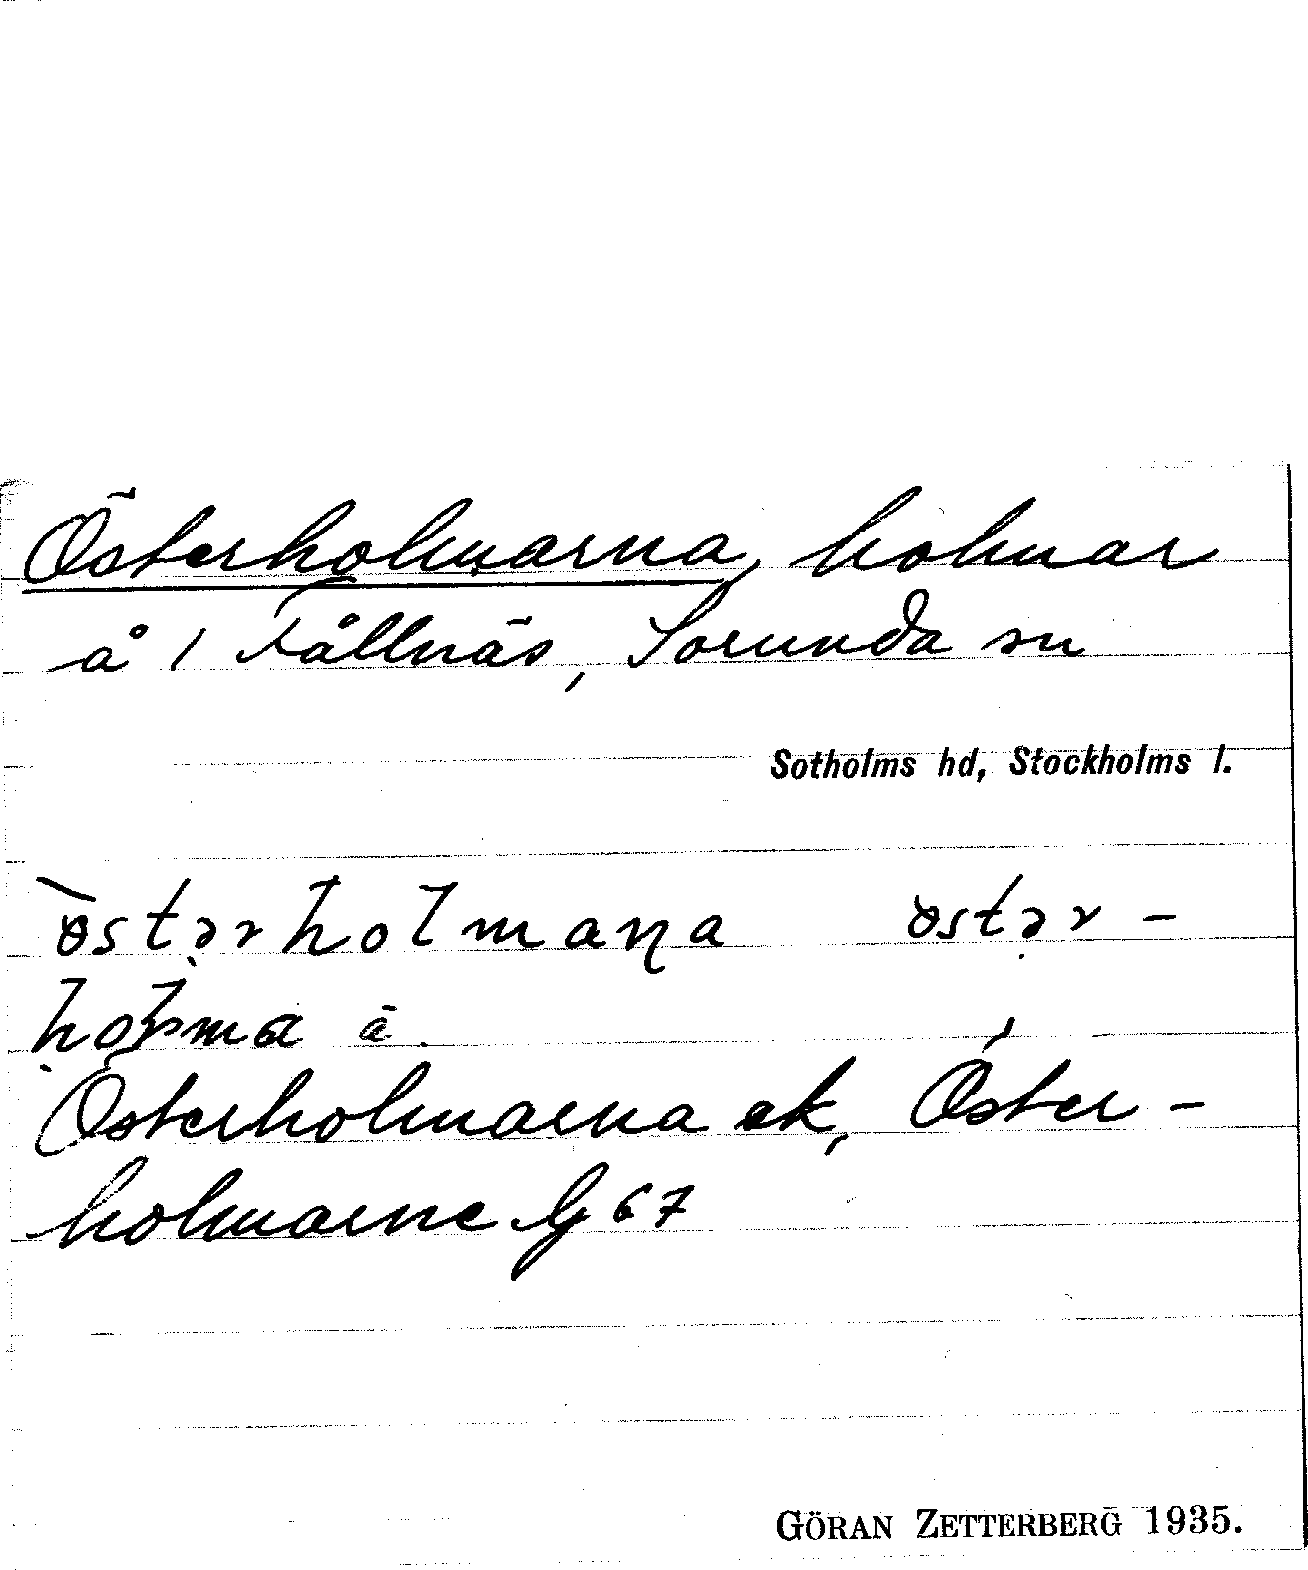 Österholmarna, holmar
å 1 Fållnäs, Sorunda sn
Sotholms hd, Stockholms l.
östərholmaṇa östər-
holma ä.
Österholmarna ek, Öster-
holmarne G 67
GÖRAN ZETTERBERG 1935.